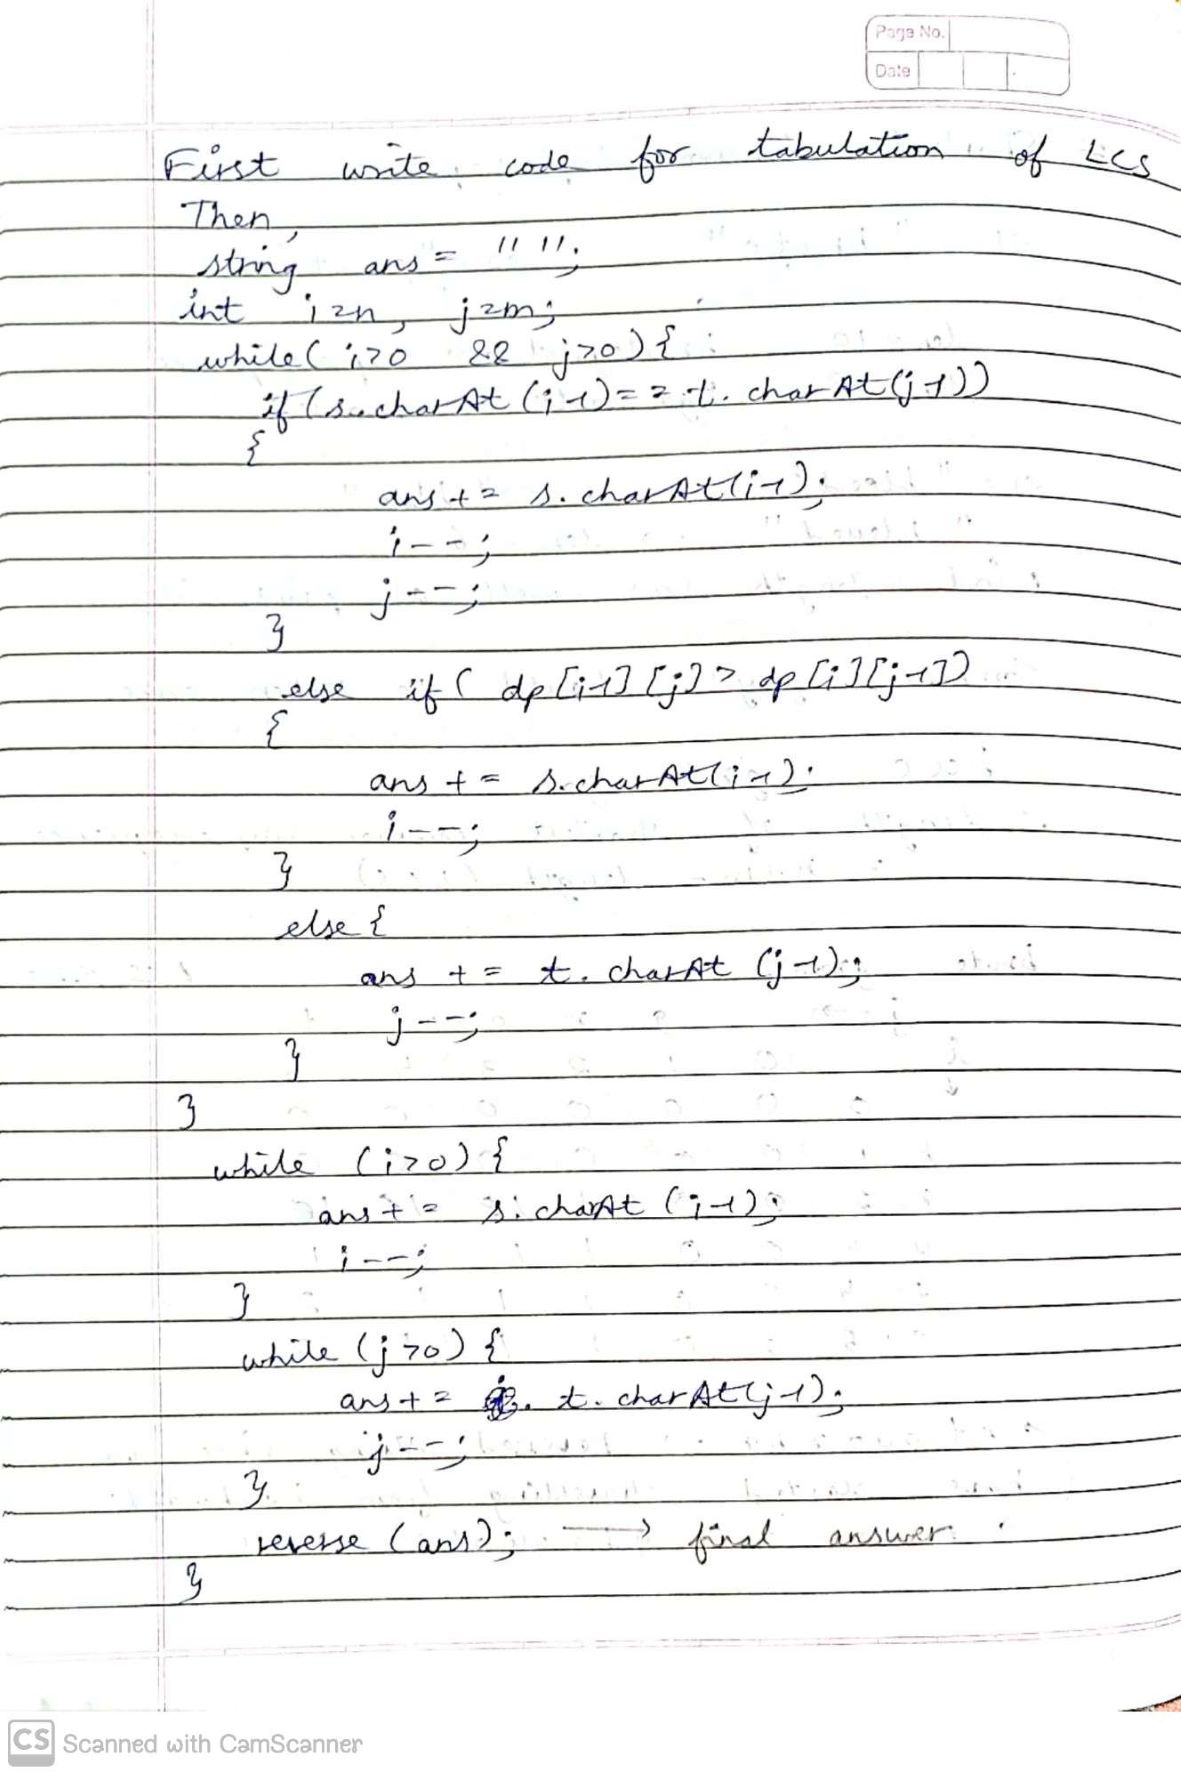 Page No.
Date
First write code for tabulation of LCS
Then,
string ans = " ";
int i=n, j=m;
while( i>0 && j>0){
if(s.charAt(i-1)== t.charAt(j-1))
{
ans += s.charAt(i-1);
i--;
j--;
}
else if( dp[i-1][j]> dp[i][j-1])
{
ans += s.charAt(i-1);
i--;
}
else {
ans += t.charAt (j-1);
j--;
}
}
while (i>0) {
ans += s.charAt (i-1);
i--;
}
while (j>0) {
ans += t.charAt(j-1);
j--;
}
reverse (ans); → final answer.
}
CS Scanned with CamScanner